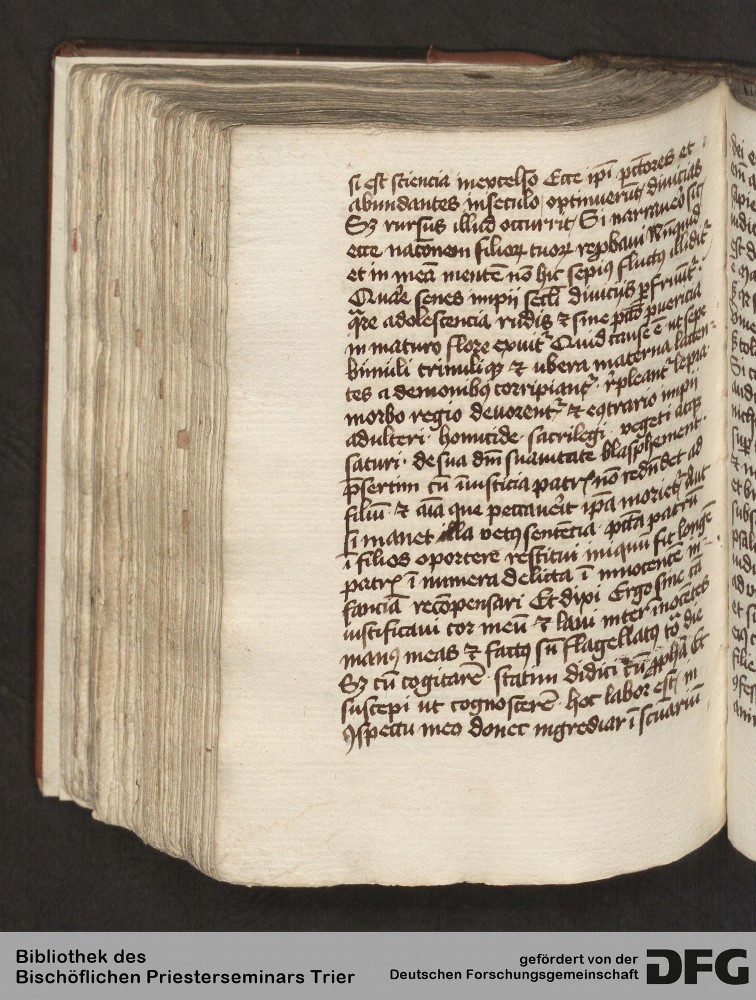 si est sciencia inexcelso Ecce ip̄i pc̄tores et
abundantes inseculo optinuerūt diuicias
Sꝫ rursus illud occurrit Si narraueo sic
ecce nac̄onem filioꝝ tuoꝝ rep̄baui Nūquid
et in meā mentē nō hic sepiꝰ fluctꝰ illidit᷑
Quar̄ senes impii secl̄i diuiciis ꝑfriūt᷑
q̄re adolescencia rudis ⁊ sine pctō puericia
in maturo flore exuit᷑ Quid cause ē ut sepe
bimuli trimuliqꝫ ⁊ ubera materna lacten
tes a demonibꝰ corripiant᷑ · r̄pleant᷑ lepra
morbo regio deuorent᷑ ⁊ eqtrario impii
adulteri · homicide · sacrilegi · vegeti atqꝫ
saturi · de sua dm̄ suauitate blasphement ·
p̄sertim cū īiusticia patrꝭ nō redūdet ad
filiū ⁊ aīa que peccauerit ip̄a moriet᷑ Aut
si manet illa vetꝰ sentencia · pctā patrū
ī filios oportere restitui iniquū sit longē
patrꝭ ī numera delicta ī innocentē in-
fanciā recōpensari Et dixi Ergo sine cā
iustificaui cor meū ⁊ laui inter īnocētes
manꝰ meas ⁊ factꝰ sū flagellatꝰ tōᷓ die
Sꝫ cū cogitarē statim didici cū ꝓphā Et
suscepi ut cognoscerē · hoc labor est in
ꝯspectu meo donec ingrediar ī scūariū
Bibliothek des
Bischöflichen Priesterseminars Trier
gefördert von der
Deutschen Forschungsgemeinschaft
DFG